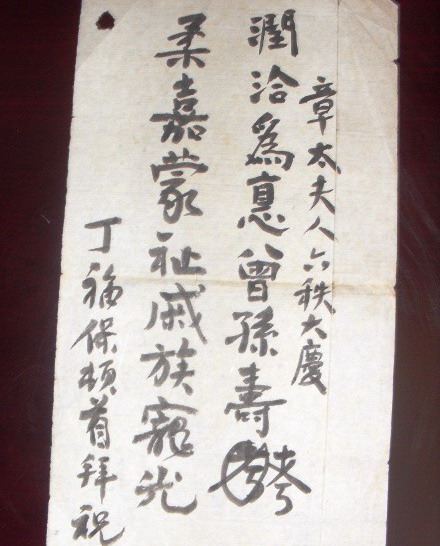 章太夫人六秩大慶
潤洽爲惪曾孫壽
柔嘉蒙祉戚族寵光
丁福保頓首拜祝